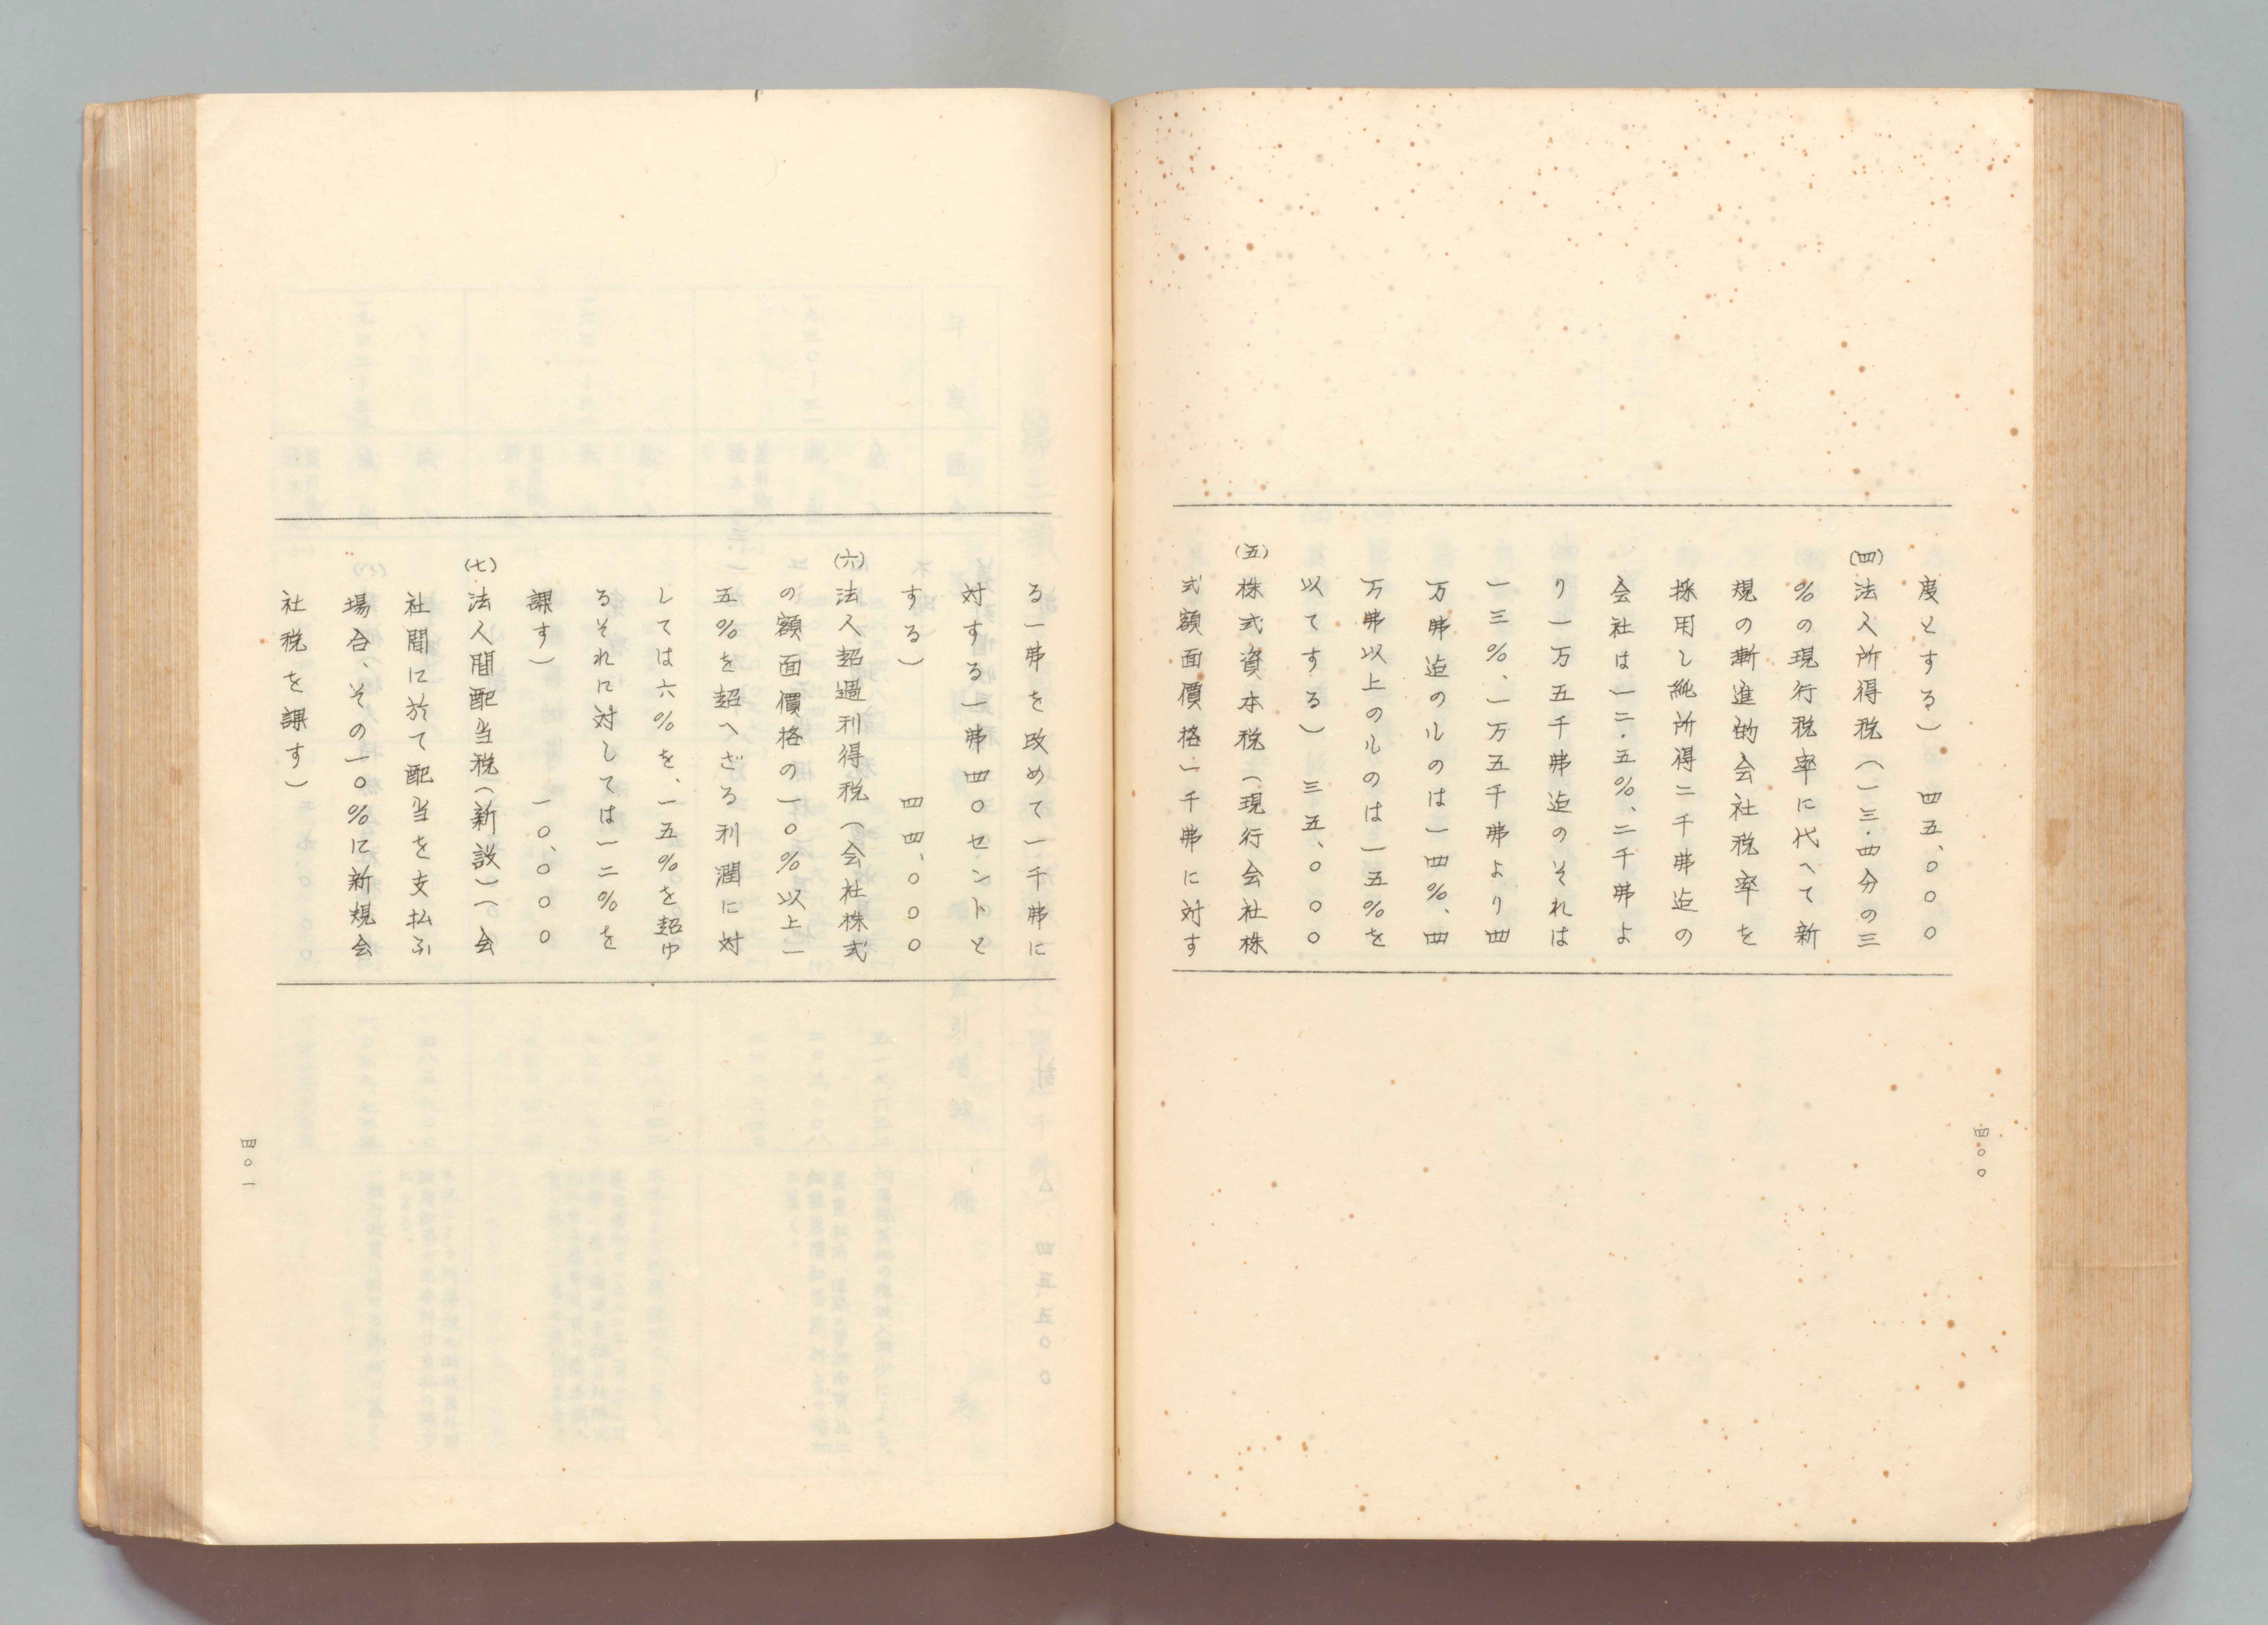 度とする) 四五、〇〇〇
(四)法人所得税(一三・四分の三
%の現行税率に代へて新
規の漸進的会社税率を
採用し純所得二千弗迄の
会社は一二・五%、二千弗よ
り一万五千弗迄のそれは
一三%、一万五千弗より四
万弗迄のルのは一四%、四
万弗以上のルのは一五%を
以てする) 三五、〇〇〇
(五)株式資本税(現行会社株
式額面價格一千弗に対す
四〇〇
る一弗を改めて一千弗に
対する一弗四〇セントと
する) 四四、〇〇〇
(六)法人超過利得税(会社株式
の額面價格の一〇%以上一
五%を超へざる利潤に対
しては六%を、一五%を超ゆ
るそれに対しては一二%を
課す) 一〇、〇〇〇
(七)法人間配当税(新設)(会
社間に於て配当を支払ふ
場合、その一〇%に新規会
社税を課す)
四〇一